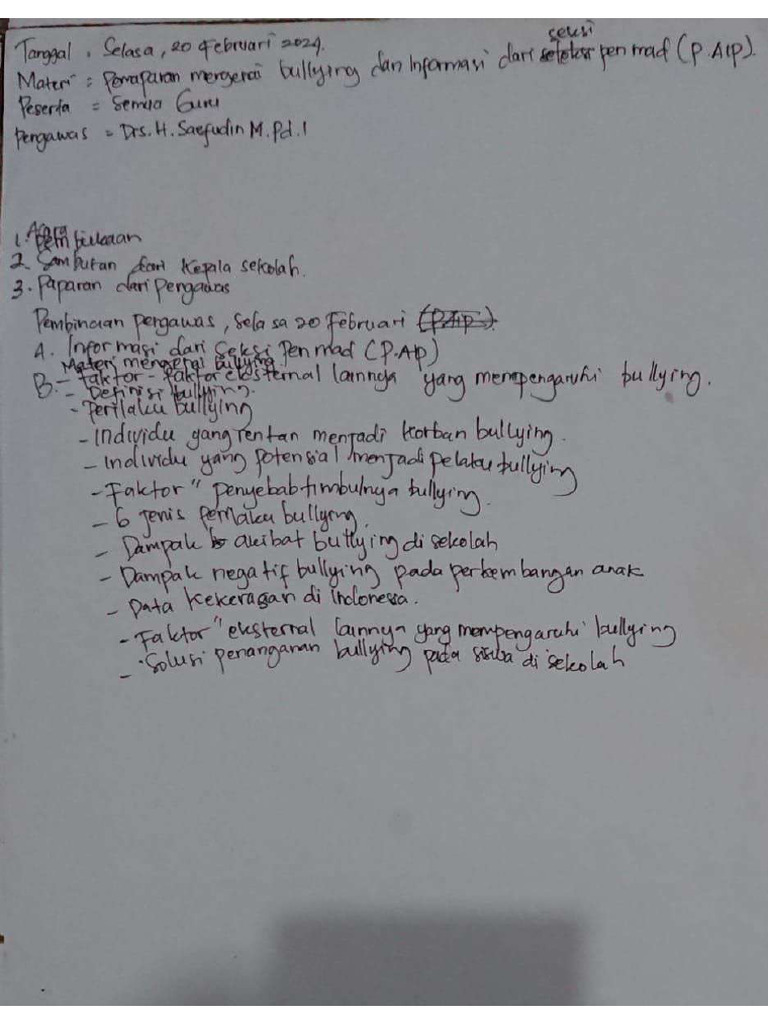 Tanggal : Selasa, 20 Februari 2024.
Materi = Pemaparan mengenai bullying dan Informasi dari seksi pen mad (P.AIP).
Peserta = Semua Guru
Pengawas = Drs. H. Saefudin M.Pd.I
Acara
1. Pembukaan
2. Sambutan dari Kepala sekolah.
3. Paparan dari Pengawas
Pembinaan pengawas, Selasa 20 Februari (P.AIP).
A. Informasi dari Seksi Pen mad (P.AIP)
Materi mengenai bullying
B. - faktor - faktor eksternal lainnya yang mempengaruhi bullying.
- Definisi bullying.
- Perilaku bullying
- Individu yang rentan menjadi korban bullying.
- Individu yang potensial menjadi pelaku bullying
- Faktor" penyebab timbulnya bullying.
- 6 jenis perilaku bullying.
- Dampak akibat bullying di sekolah
- Dampak negatif bullying pada perkembangan anak
- Data kekerasan di Indonesia.
- Faktor" eksternal lainnya yang mempengaruhi bullying
- Solusi penanganan bullying pada siswa di sekolah